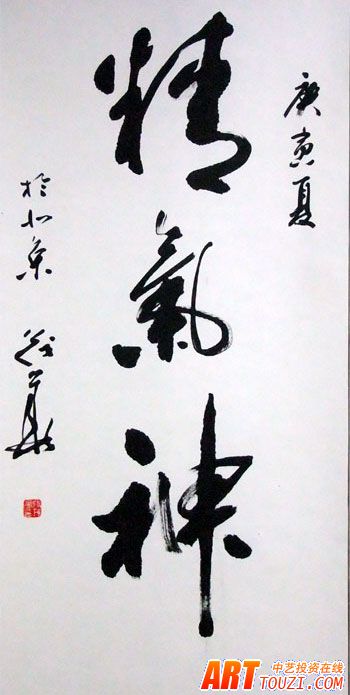 庚寅夏
精氣神
於北京
ART 中艺投资在线
TOUZI.COM